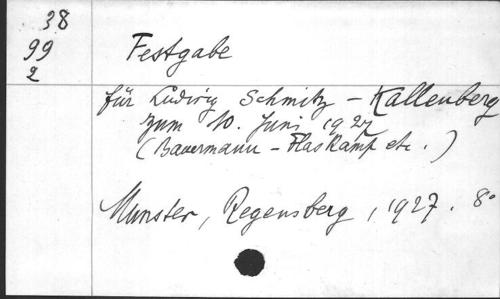 38
99
2
Festgabe
für Ludwig Schmitz - Kallenberg
zum 10. Juni 1927
(Bauermann - Flaskamp etc.)
Münster, Regensberg, 1927. 8°